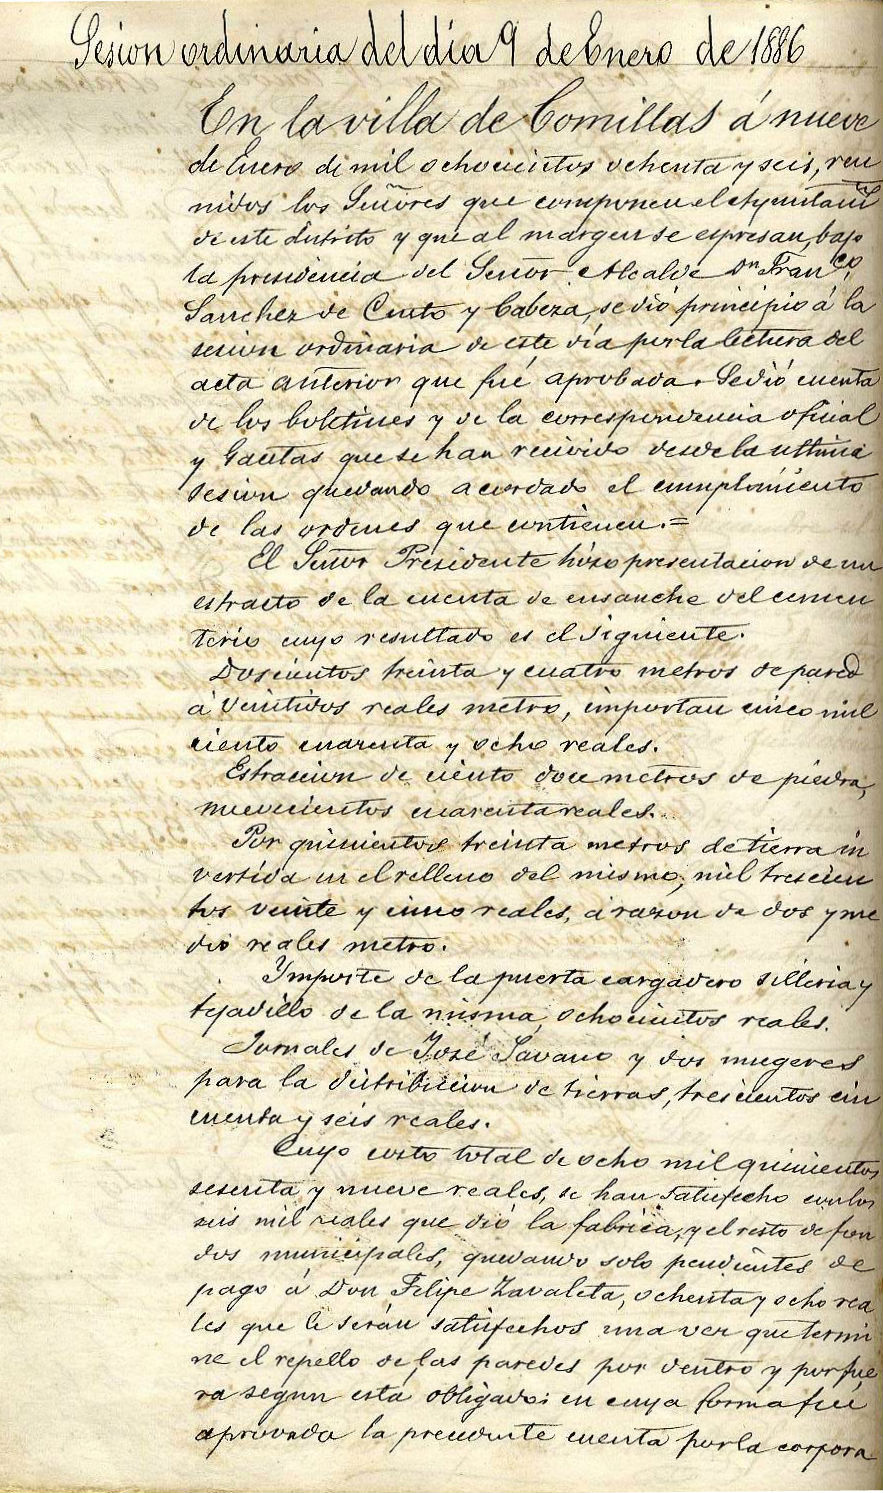 Sesion ordinaria del dia 9 de Enero de 1886
En la villa de Comillas á nueve
de Enero de mil ochocientos ochenta y seis, reu
nidos los Señores que componen el Ayuntamto
de este distrito y que al margen se espresan, bajo
la presidencia del Señor Alcalde Dn Franco
Sanchez de Cueto y Cabeza, se dió principio á la
sesion ordinaria de este día por la lectura del
acta anterior que fué aprobada. Se dió cuenta
de los boletines y de la correspondencia oficial
y Gacetas que se han recivido desde la ultima
sesion quedando acordado el cumplimiento
de las ordenes que contienen.=
El Señor Presidente hizo presentacion de un
estracto de la cuenta de ensanche del cemen
terio cuyo resultado es el siguiente.
Doscientos treinta y cuatro metros de pared
á veintidos reales metro, importan cinco mil
ciento cuarenta y ocho reales.
Estraccion de ciento doce metros de piedra,
nuevecientos cuarenta reales.
Por quinientos treinta metros de tierra in
vertida en el relleno del mismo, mil trescien
tos veinte y cinco reales, á razon de dos y me
dio reales metro.
Ymporte de la puerta cargadero silleria y
tejadillo de la misma, ochocientos reales.
Jornales de José y dos mugeres
para la distribucion de tierras, trescientos cin
cuenta y seis reales.
Cuyo costo total de ocho mil quinientos
sesenta y nueve reales, se han satisfecho con los
seis mil reales que dió la fabrica, y el resto de fon
dos municipales, quedando solo pendientes de
pago á Don Felipe Zavaleta, ochenta y ocho rea
les que le serán satisfechos una vez que termi
ne el repello de las paredes por dentro y por fue
ra segun esta obligado: en cuya forma fué
aprovada la precedente cuenta por la corpora